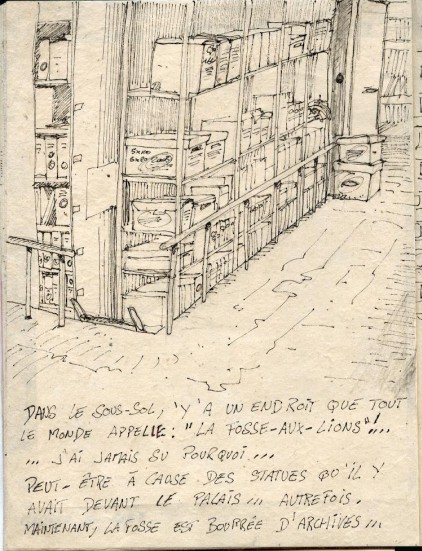 DANS LE SOUS-SOL, 'Y'A UN ENDROIT QUE TOUT
LE MONDE APPELLE : "LA FOSSE-AUX-LIONS"!...
... J'AI JAMAIS SU POURQUOI...
PEUT-ÊTRE À CAUSE DES STATUES QU'IL Y
AVAIT DEVANT LE PALAIS... AUTREFOIS.
MAINTENANT, LA FOSSE EST BOURRÉE D'ARCHIVES...